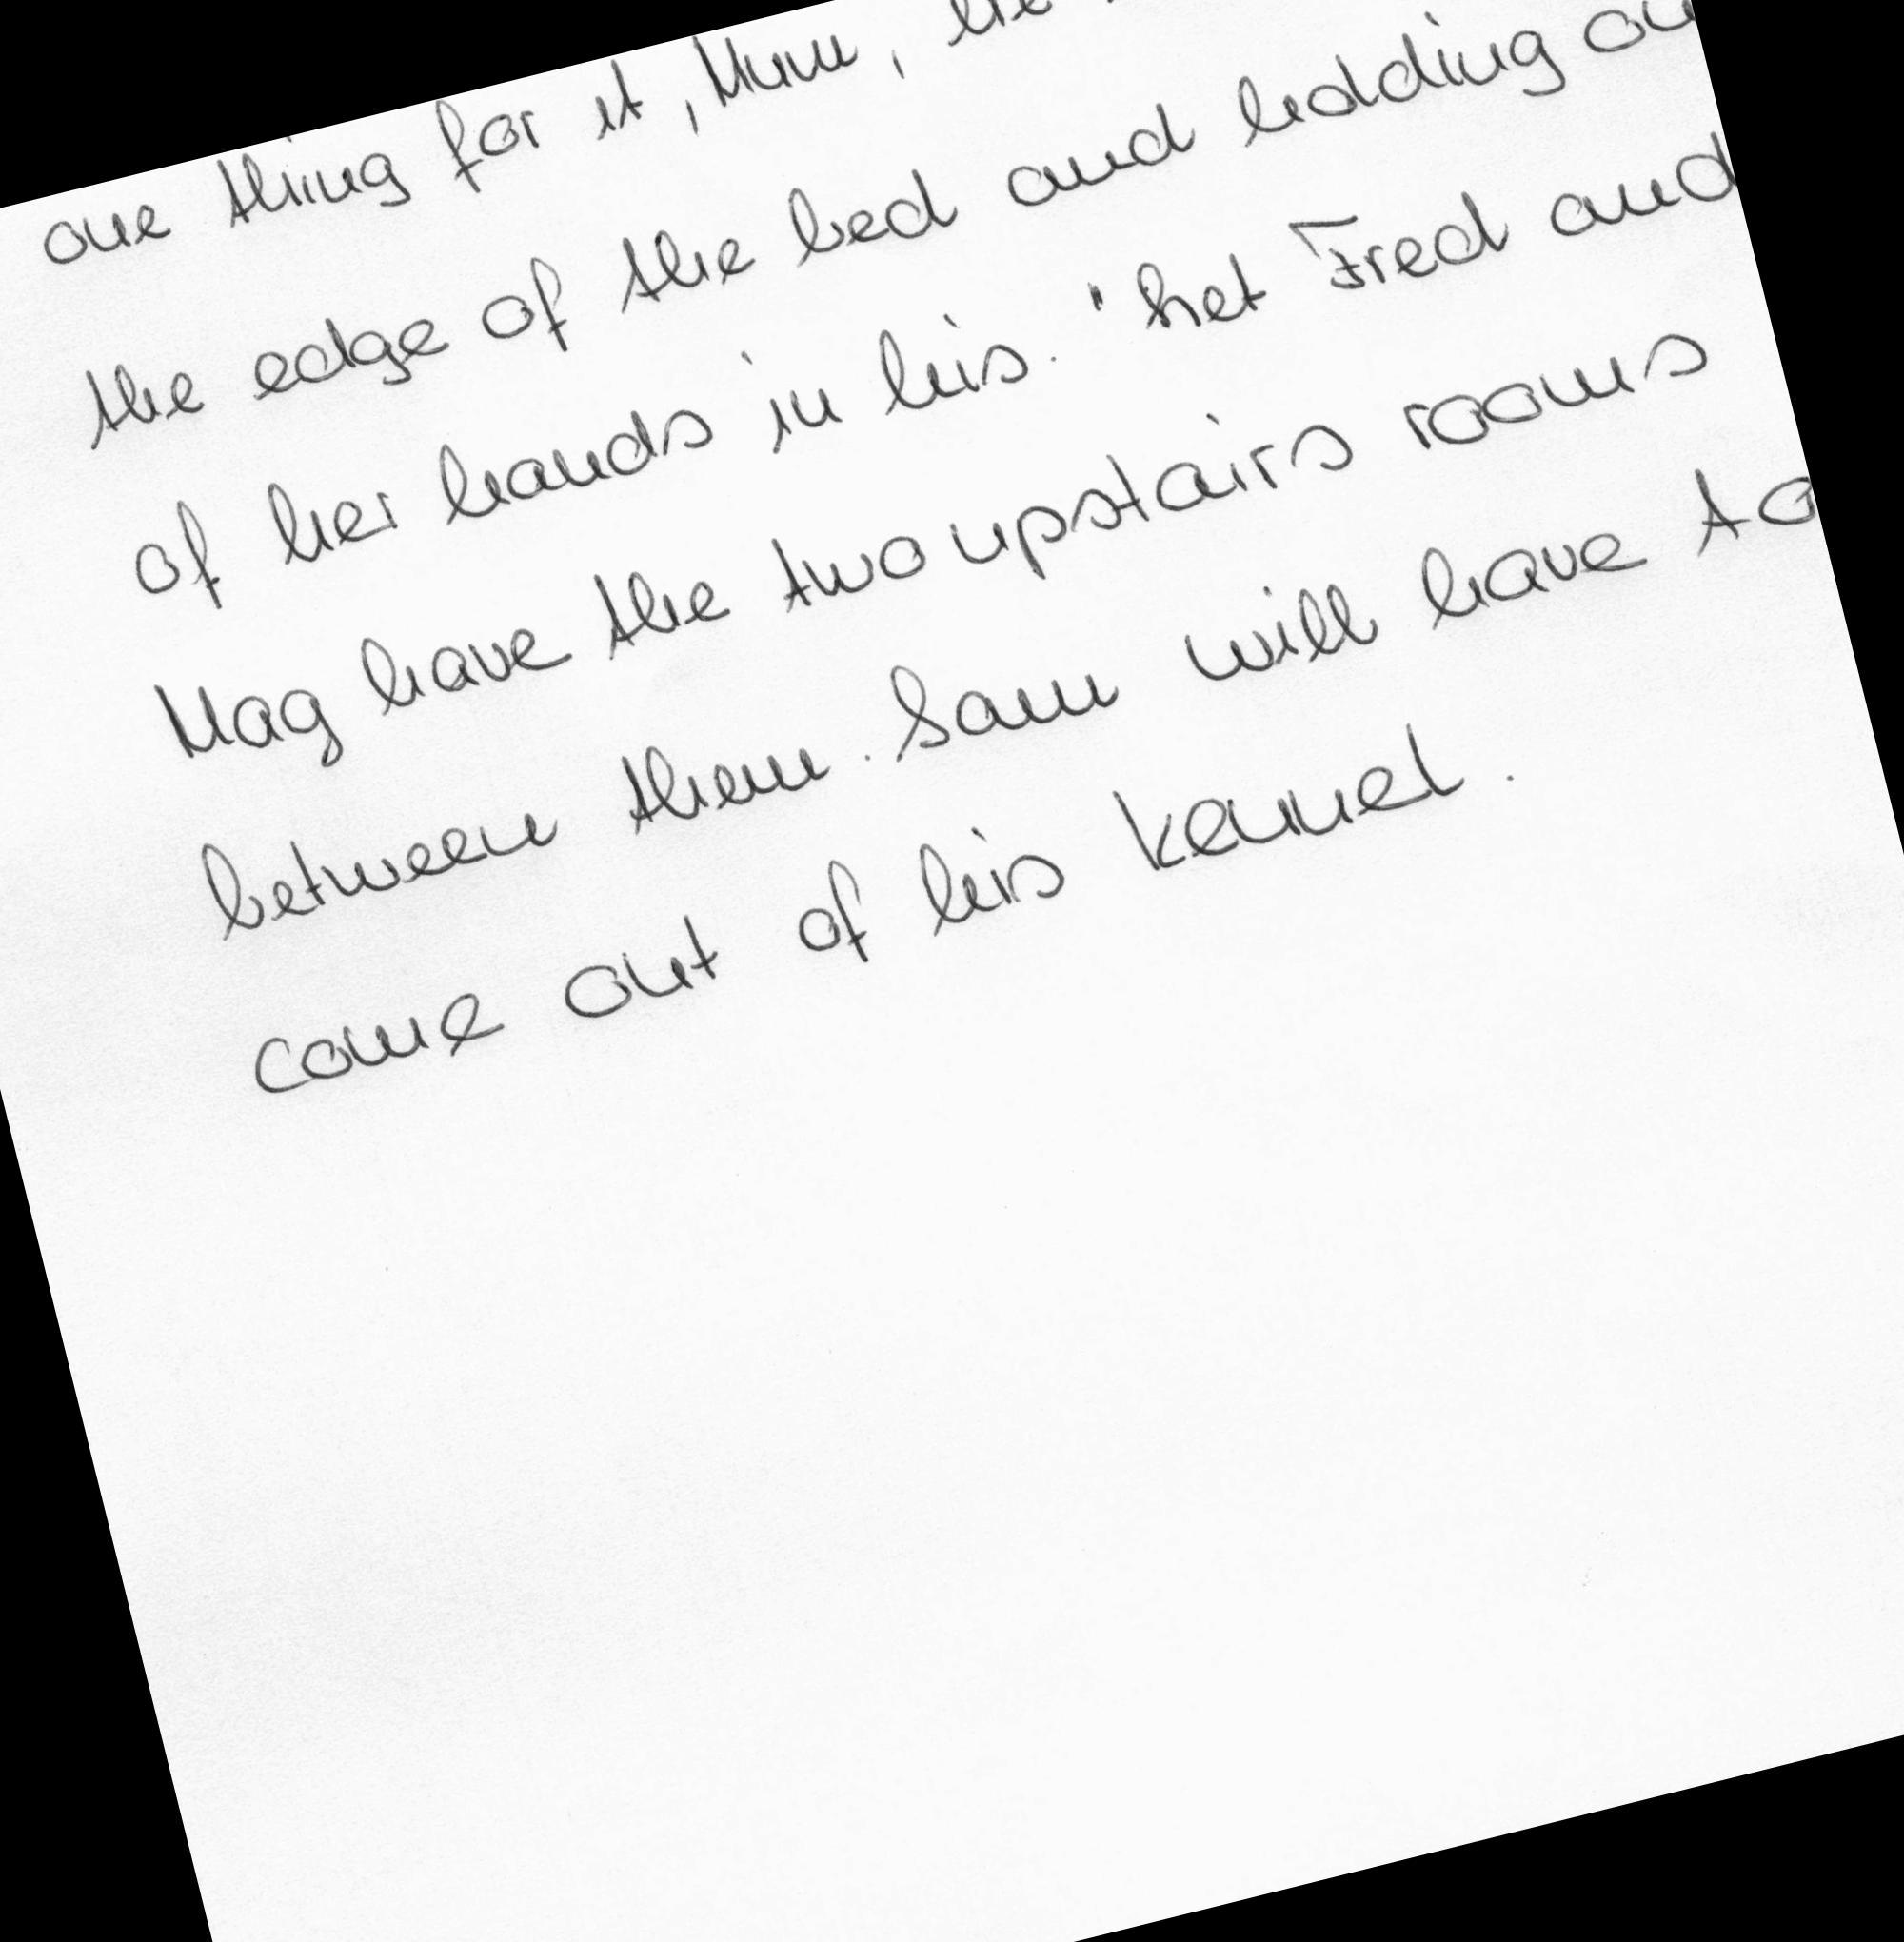 one thing for it, Mum, he
the edge of the bed and holding
of her hands in his. "Let Fred and
Mag have the two upstairs rooms
between them. Sam will have to
come out of his kennel.